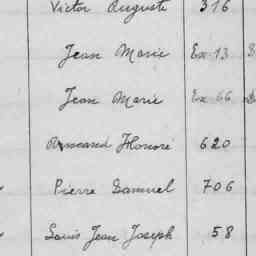 Victor Auguste 316
Jean Marie Ex 13
Jean Marie Ex 66
Armand Honoré 620
Pierre Samuel 706
Louis Jean Joseph 58